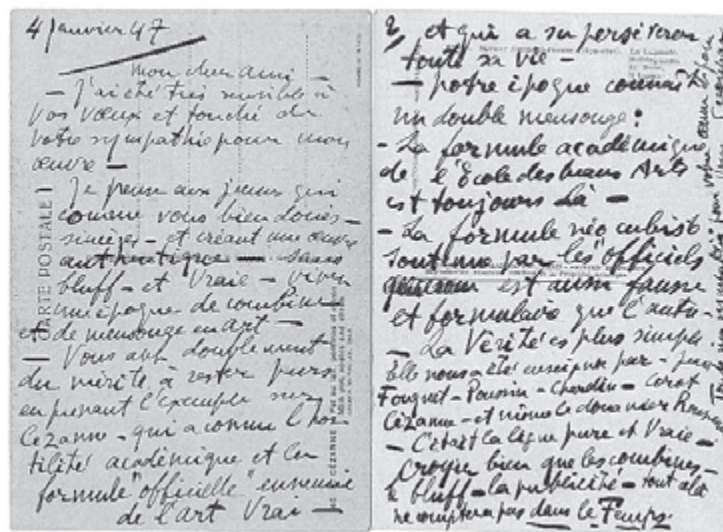 4 Janvier 47
mon cher ami —
— J'ai été très sensible à
vos vœux et touché de
votre sympathie pour mon
œuvre —
Je pense aux jeunes qui
comme vous bien doués —
sincères — et créant une œuvre
authentique — sans
bluff — et Vraie — vivent
une époque de combine —
et de mensonge en art —
Vous avez doublement
du mérite à rester purs
en prenant l'exemple sur
Cézanne — qui a connu l'hos-
tilité académique et la
formule "officielle" ennemie
de l'art Vrai —
CARTE POSTALE
CÉZANNE
2 et qui a su persévérer
toute sa vie —
— notre époque connaît
un double mensonge :
- La formule académique
de l'École des beaux Arts
est toujours là —
- La formule néo cubiste
soutenue par les "officiels
est aussi fausse
et formulaire que l'autre —
— La Vérité est plus simple
Elle nous a été enseignée par —
Fouquet — Poussin — Chardin — Corot
Cézanne — et même le douanier Rousseau
— C'était la ligne pure et Vraie —
Croyez bien que les combines —
le bluff — la publicité — tout cela
ne comptera pas dans le Temps.